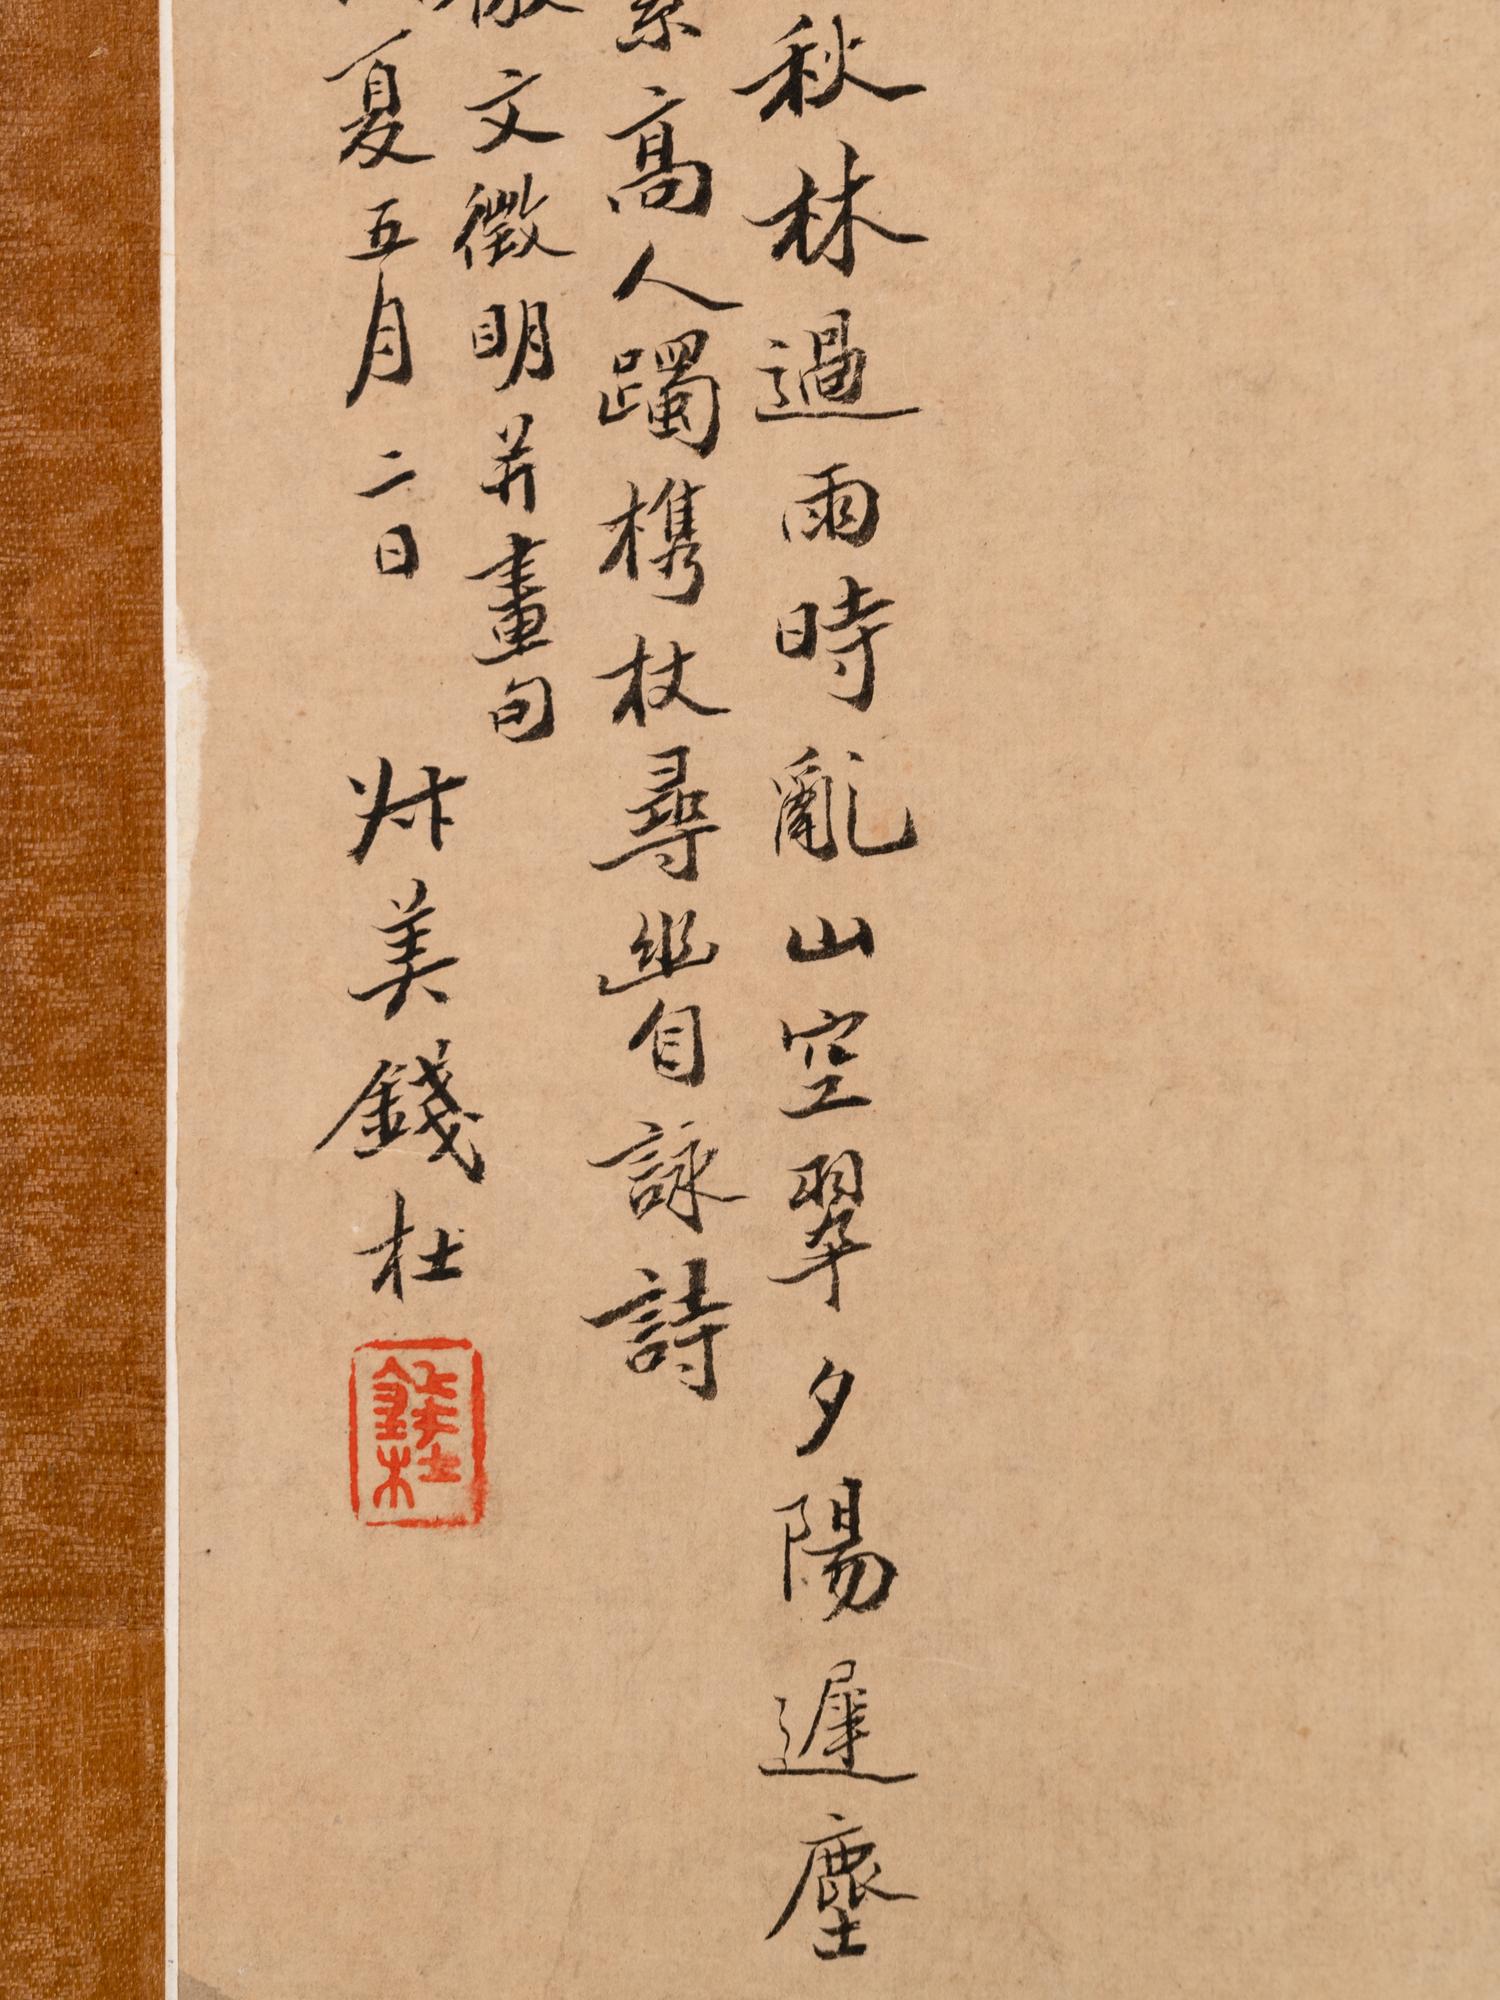 秋林過雨時亂山空翠夕陽遲塵
高人躅㩦杖尋幽自詠詩
倣文徵明并畫句
夏五月二日
叔美錢杜
錢杜